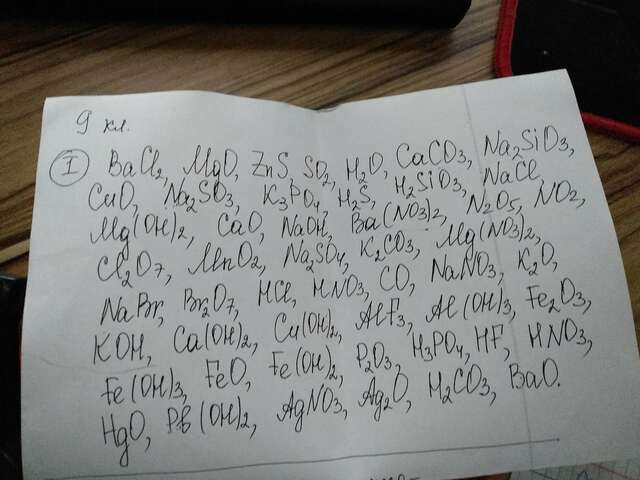 9 кл.
I BaCl2, MgO, ZnS, SO2, H2O, CaCO3, Na2SiO3,
CuO, Na2SO3, K3PO4, H2S, H2SiO3, NaCl,
Mg(OH)2, CaO, NaOH, Ba(NO3)2, N2O5, NO2,
Cl2O7, MnO2, Na2SO4, K2CO3, Mg(NO3)2,
NaBr, Br2O7, HCl, HNO3, CO, NaNO3, K2O,
KOH, Ca(OH)2, Cu(OH)2, AlF3, Al(OH)3, Fe2O3,
Fe(OH)3, FeO, Fe(OH)2, P2O3, H3PO4, HF, HNO3,
HgO, Pb(OH)2, AgNO3, Ag2O, H2CO3, BaO.